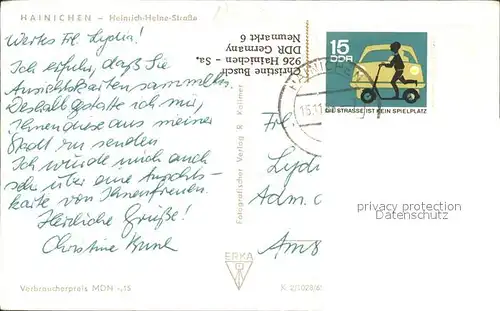 HAINICHEN - Heinrich-Heine-Straße
Wertes Frl. Lydia!
Ich erfuhr, daß Sie
Ansichtskarten sammeln.
Deshalb gestatte ich mir,
Ihnen diese aus meiner
Stadt zu senden.
Ich würde mich auch
sehr über eine Ansichts-
karte von Ihnen freuen.
Herzliche Grüße!
Christine Busch
Verbraucherpreis MDN -,15
Fotografischer Verlag R. Kallmer
ERKA
K 2/1028/6
Christine Busch
926 Hainichen - Sa.
DDR Germany
Neumarkt 6
HAINICHEN
15.11
15
DDR
DIE STRASSE IST KEIN SPIELPLATZ
Frl.
Lydi
Adm. d
Ams
privacy protection
Datenschutz